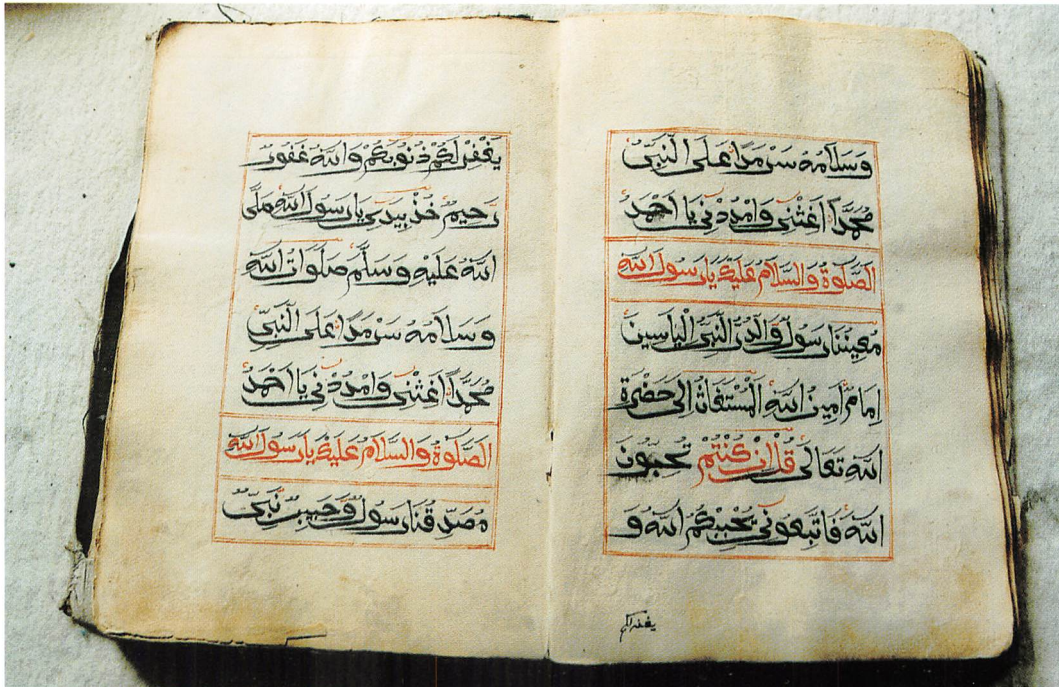 وَسَلَامُهُ سَرْمَدًا عَلَى النَّبِيِّ
مُحَمَّدًا اَغِثْنِي وَامْدُدْنِي يَا اَحْمَدُ
اَلصَّلٰوةُ وَالسَّلَامُ عَلَيْكَ يَارَسُولَ اللهِ
مُعِينُنَا رَسُولٌ وَالدُّرُّ النَّبِيُّ الْيَاسِينَ
اِمَامٌ اَمِينُ اللهِ الْمُسْتَغَاثُ اِلَى حَضْرَةِ
اللهِ تَعَالَى قُلْ اِنْ كُنْتُمْ تُحِبُّونَ
اللهَ فَاتَّبِعُونِي يُحْبِبْكُمُ اللهُ وَ
يغفر لكم
يَغْفِرْ لَكُمْ ذُنُوبَكُمْ وَاللهُ غَفُورٌ
رَحِيمٌ خُذْ بِيَدِي يَارَسُولَ اللهِ صَلَّى
اللهُ عَلَيْهِ وَسَلَّمَ صَلَوَاتُ اللهِ
وَسَلَامُهُ سَرْمَدًا عَلَى النَّبِيِّ
مُحَمَّدًا اَغِثْنِي وَامْدُدْنِي يَا اَحْمَدُ
اَلصَّلٰوةُ وَالسَّلَامُ عَلَيْكَ يَارَسُولَ اللهِ
مُصَدِّقُنَا رَسُولٌ وَحَبِيبٌ نَبِيٌّ